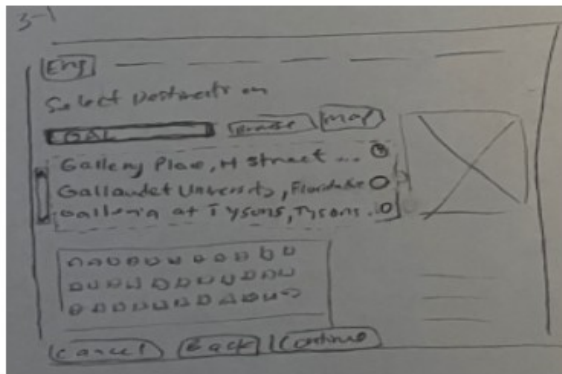 3-1
Eng
Select Destination
GAL Browse Map
Gallery Place, H Street ...
Gallaudet University, Florida Ave
Galleria at Tysons, Tysons..
Cancel Back Continue